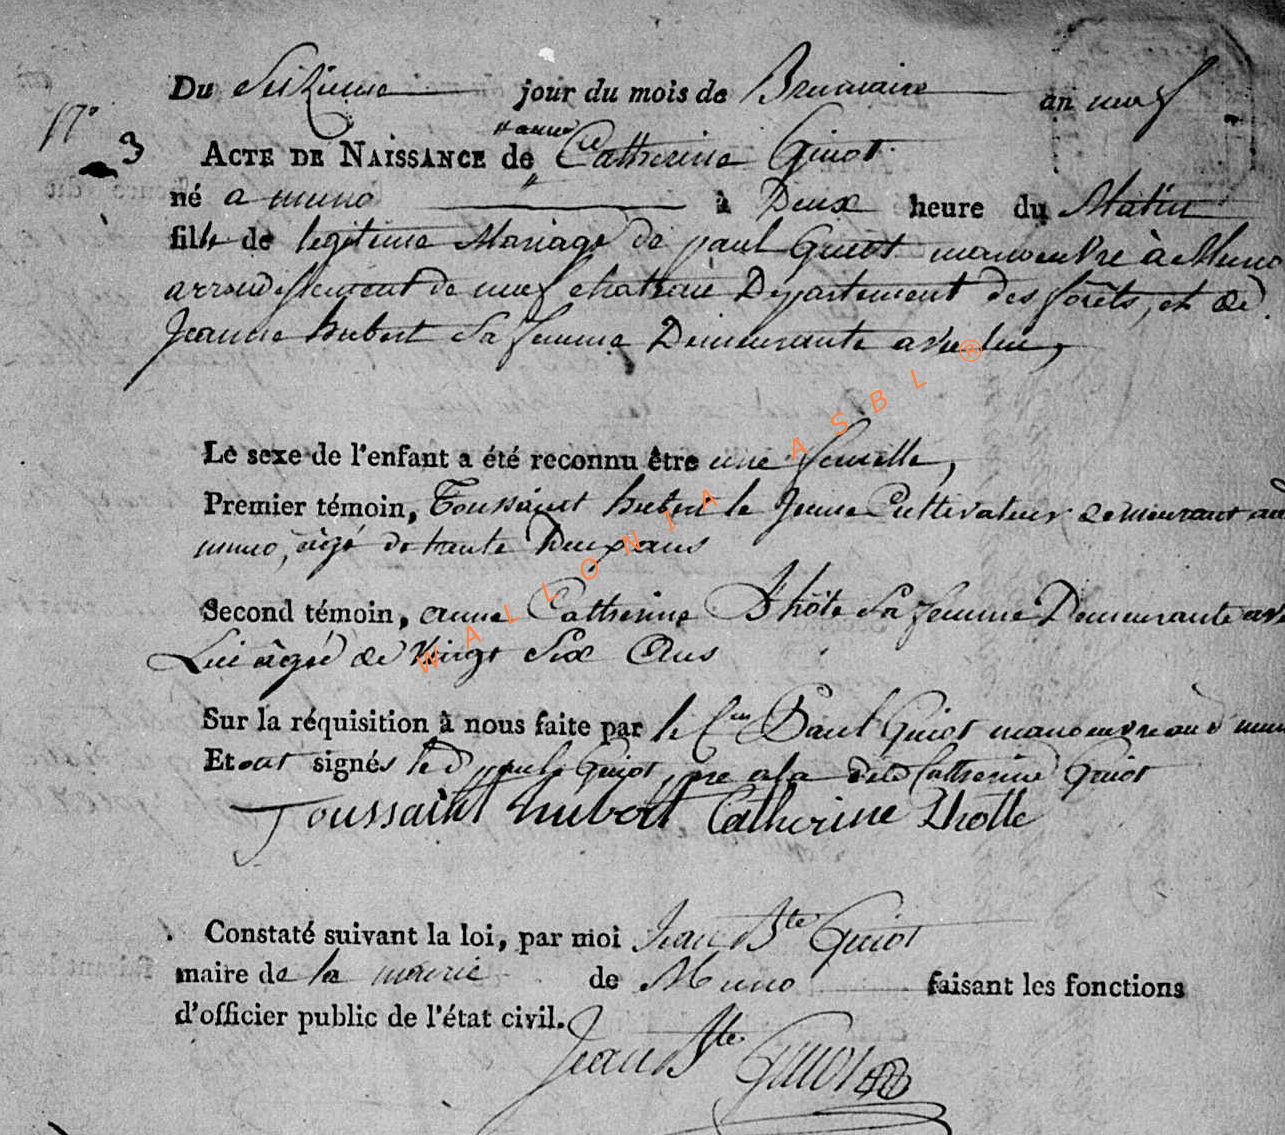 Du Seizieme jour du mois de Brumaire an neuf
N° 3
anne
ACTE DE NAISSANCE de Catherine Guiot
né a muno à Deux heure du Matin
fille de legitime Mariage de paul Guiot manoeuvre à Muno
arrondissement de neufchateau Département des forêts, et de
Jeanne hubert Sa femme Demeurante avec lui,
Le sexe de l'enfant a été reconnu être une femelle,
Premier témoin, Toussaint hubert le Jeune Cultivateur demeurant au
muno, âgé de trente Deux ans
Second témoin, anne Catherine Dhôte Sa femme Demeurante ave
Lui âgé de Vingt Six Ans
Sur la réquisition à nous faite par le Cen Paul Guiot manoeuvre au d muno
Et ont signés le d paul Guiot, pre a la dite Catherine Guiot
Toussaint hubert Catherine Dhotte
Constaté suivant la loi, par moi Jean Bte Guiot
maire de la mairie de Muno faisant les fonctions
d'officier public de l'état civil.
Jean Bte Guiot
WALLONIA ASBL ®